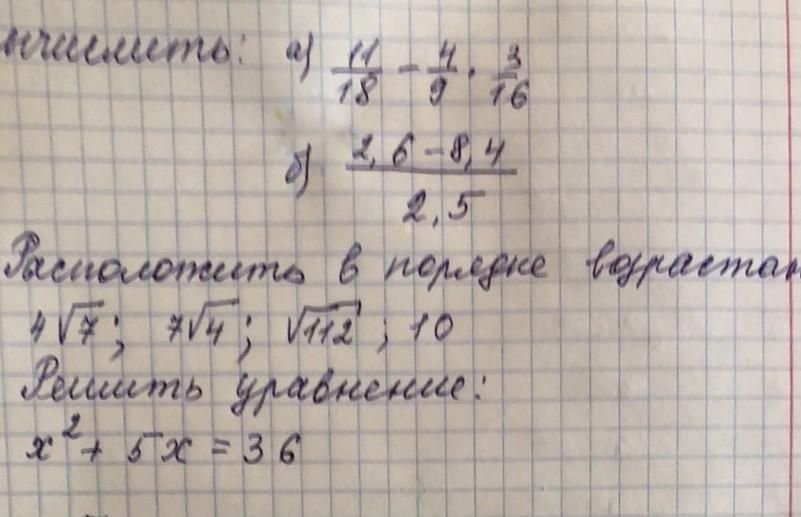 ычислить: а) 11/18 - 4/9 · 3/16
б) 2,6 - 8,4 / 2,5
Расположить в порядке возрастан
4√7; 7√4; √112; 10
Решить уравнение:
x² + 5x = 36